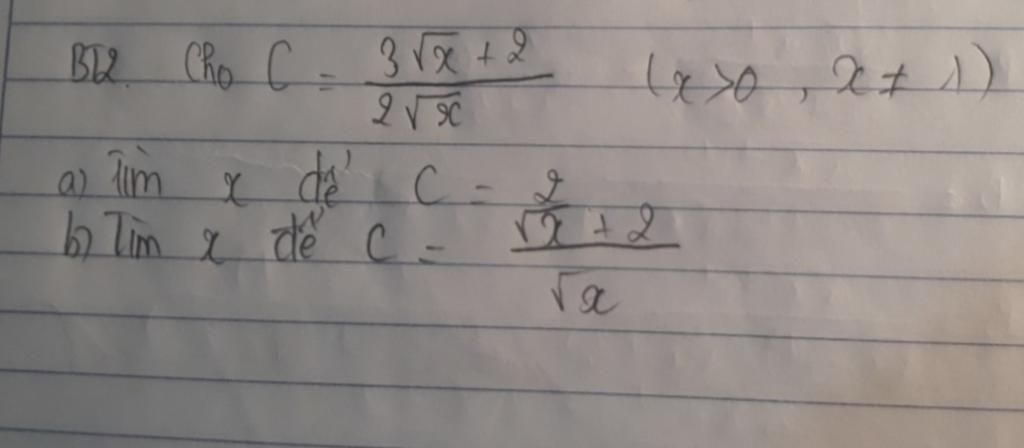 BT2. Cho C = \frac{3\sqrt{x} + 2}{2\sqrt{x}} (x>0, x ≠ 1)
a) Tìm x để C = 2
b) Tìm x để C = \frac{\sqrt{x} + 2}{\sqrt{x}}